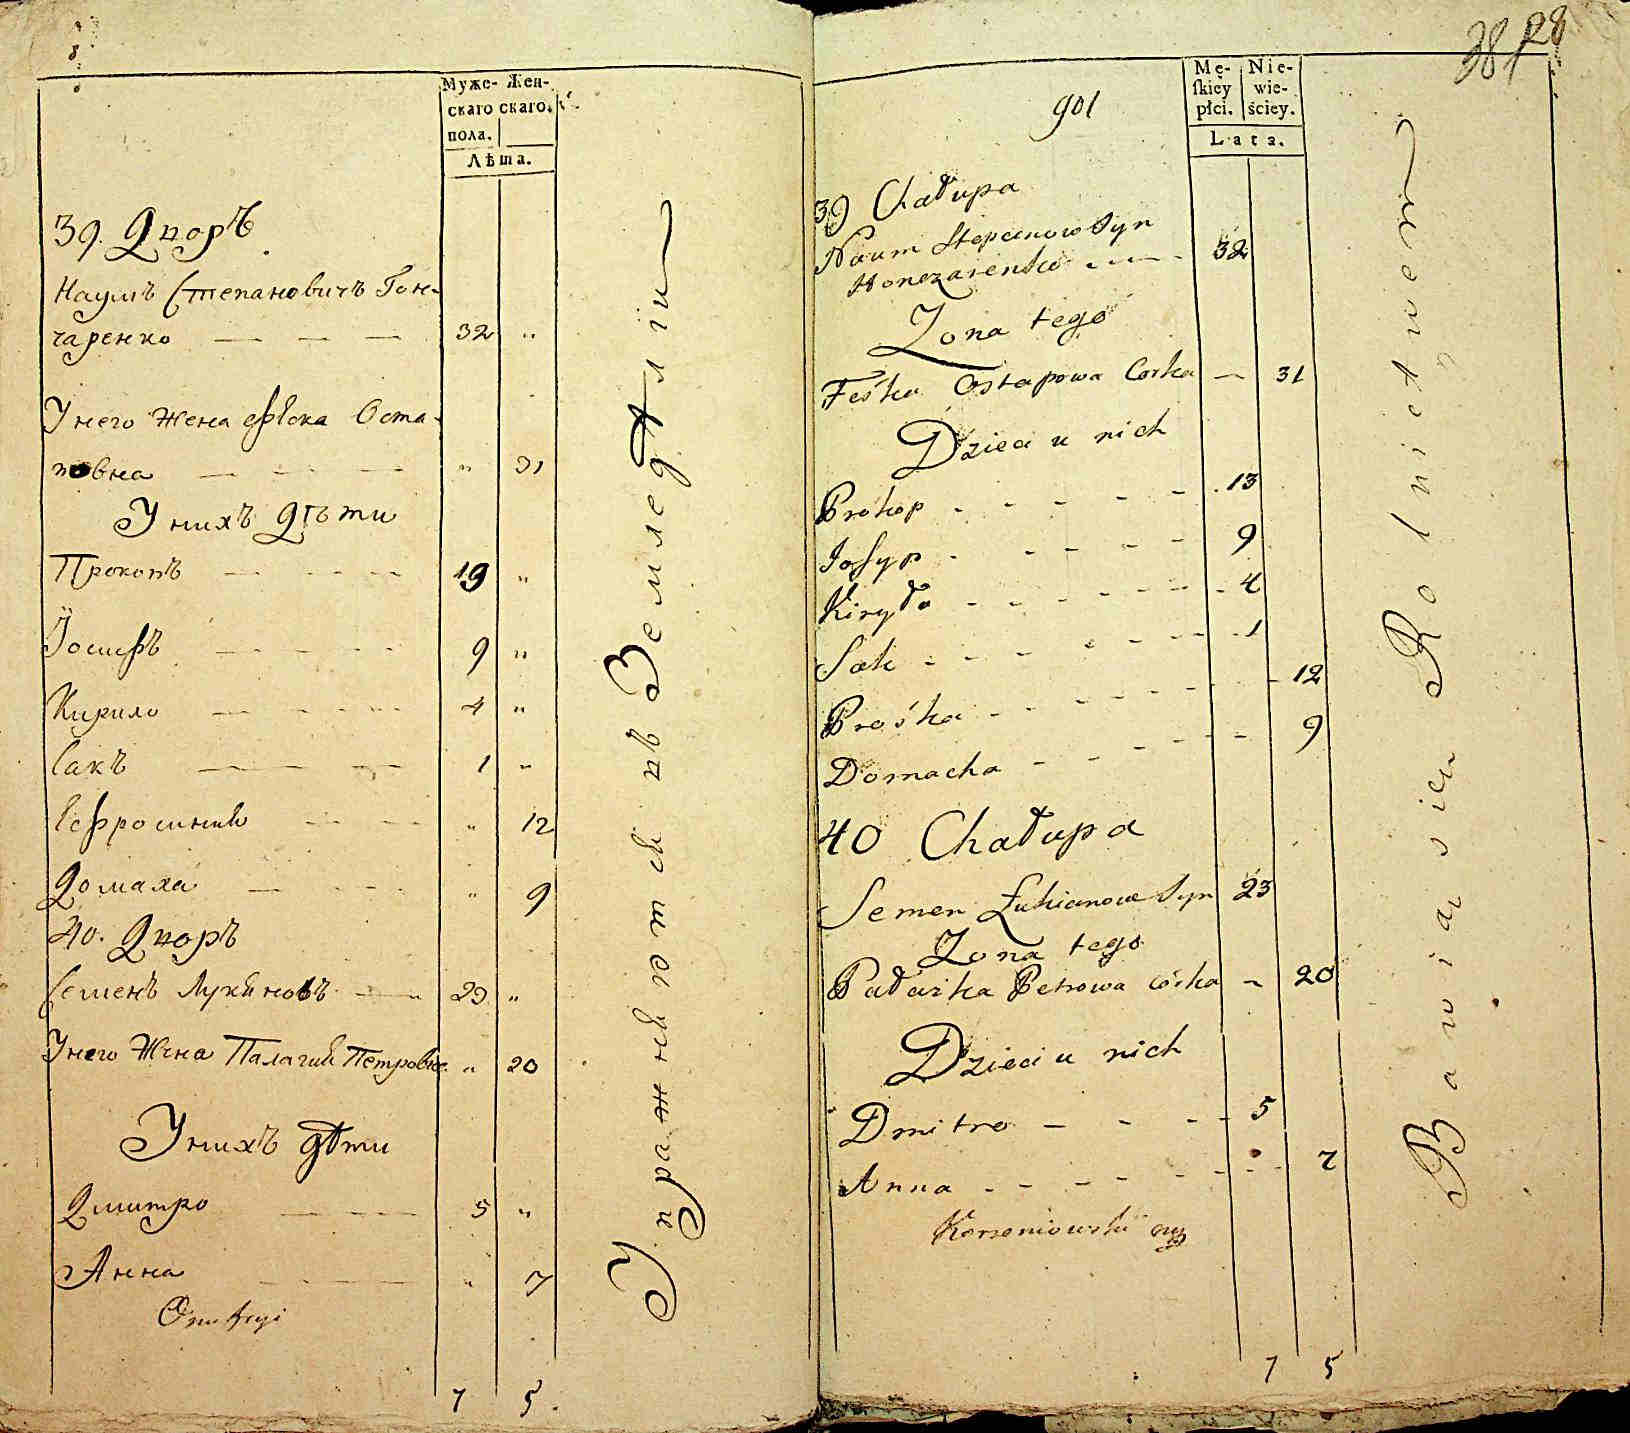 Муже- Жен-
скаго скаго.
пола.
Лѣта.
39. Дворъ
Наумъ Степановичъ Гон-
чаренко — — — 32 „
У него жена Фѣска Оста-
повна — — — „ 31
У нихъ дѣти
Прокопъ — — — 13 „
Іосифъ — — — 9 „
Кирило — — — 4 „
Сакъ — — — 1 „
Ефросинія — — „ 12
Домаха — — „ 9
40. Дворъ
Семенъ Лукяновъ — 23 „
У него Жена Палагия Петровна „ 20
У нихъ дѣти
Дмитро — — 5 „
Анна — — „ 7
7 5
Упражняются въ Земледѣліи
38 28
901
Mę- Nie-
skiey wie-
płci. ściey.
Lata.
39 Chałupa
Naum Stepanow Syn
Honczarenko - - - - 32
Zona tego
Feśka Ostapowa Corka — 31
Dzieci u nich
Prokop - - - - - 13
Josyp - - - - - 9
Kiryło - - - - - 4
Sak - - - - - 1
Prośka - - - - - 12
Domacha - - - - - 9
40 Chałupa
Semen Łukianow Syn 23
Zona tego
Pałazka Petrowa córka — 20
Dzieci u nich
Dmitro — - - - 5
Anna - - - - - 7
Korzeniowski
7 5
Bawią się Rolnictwem